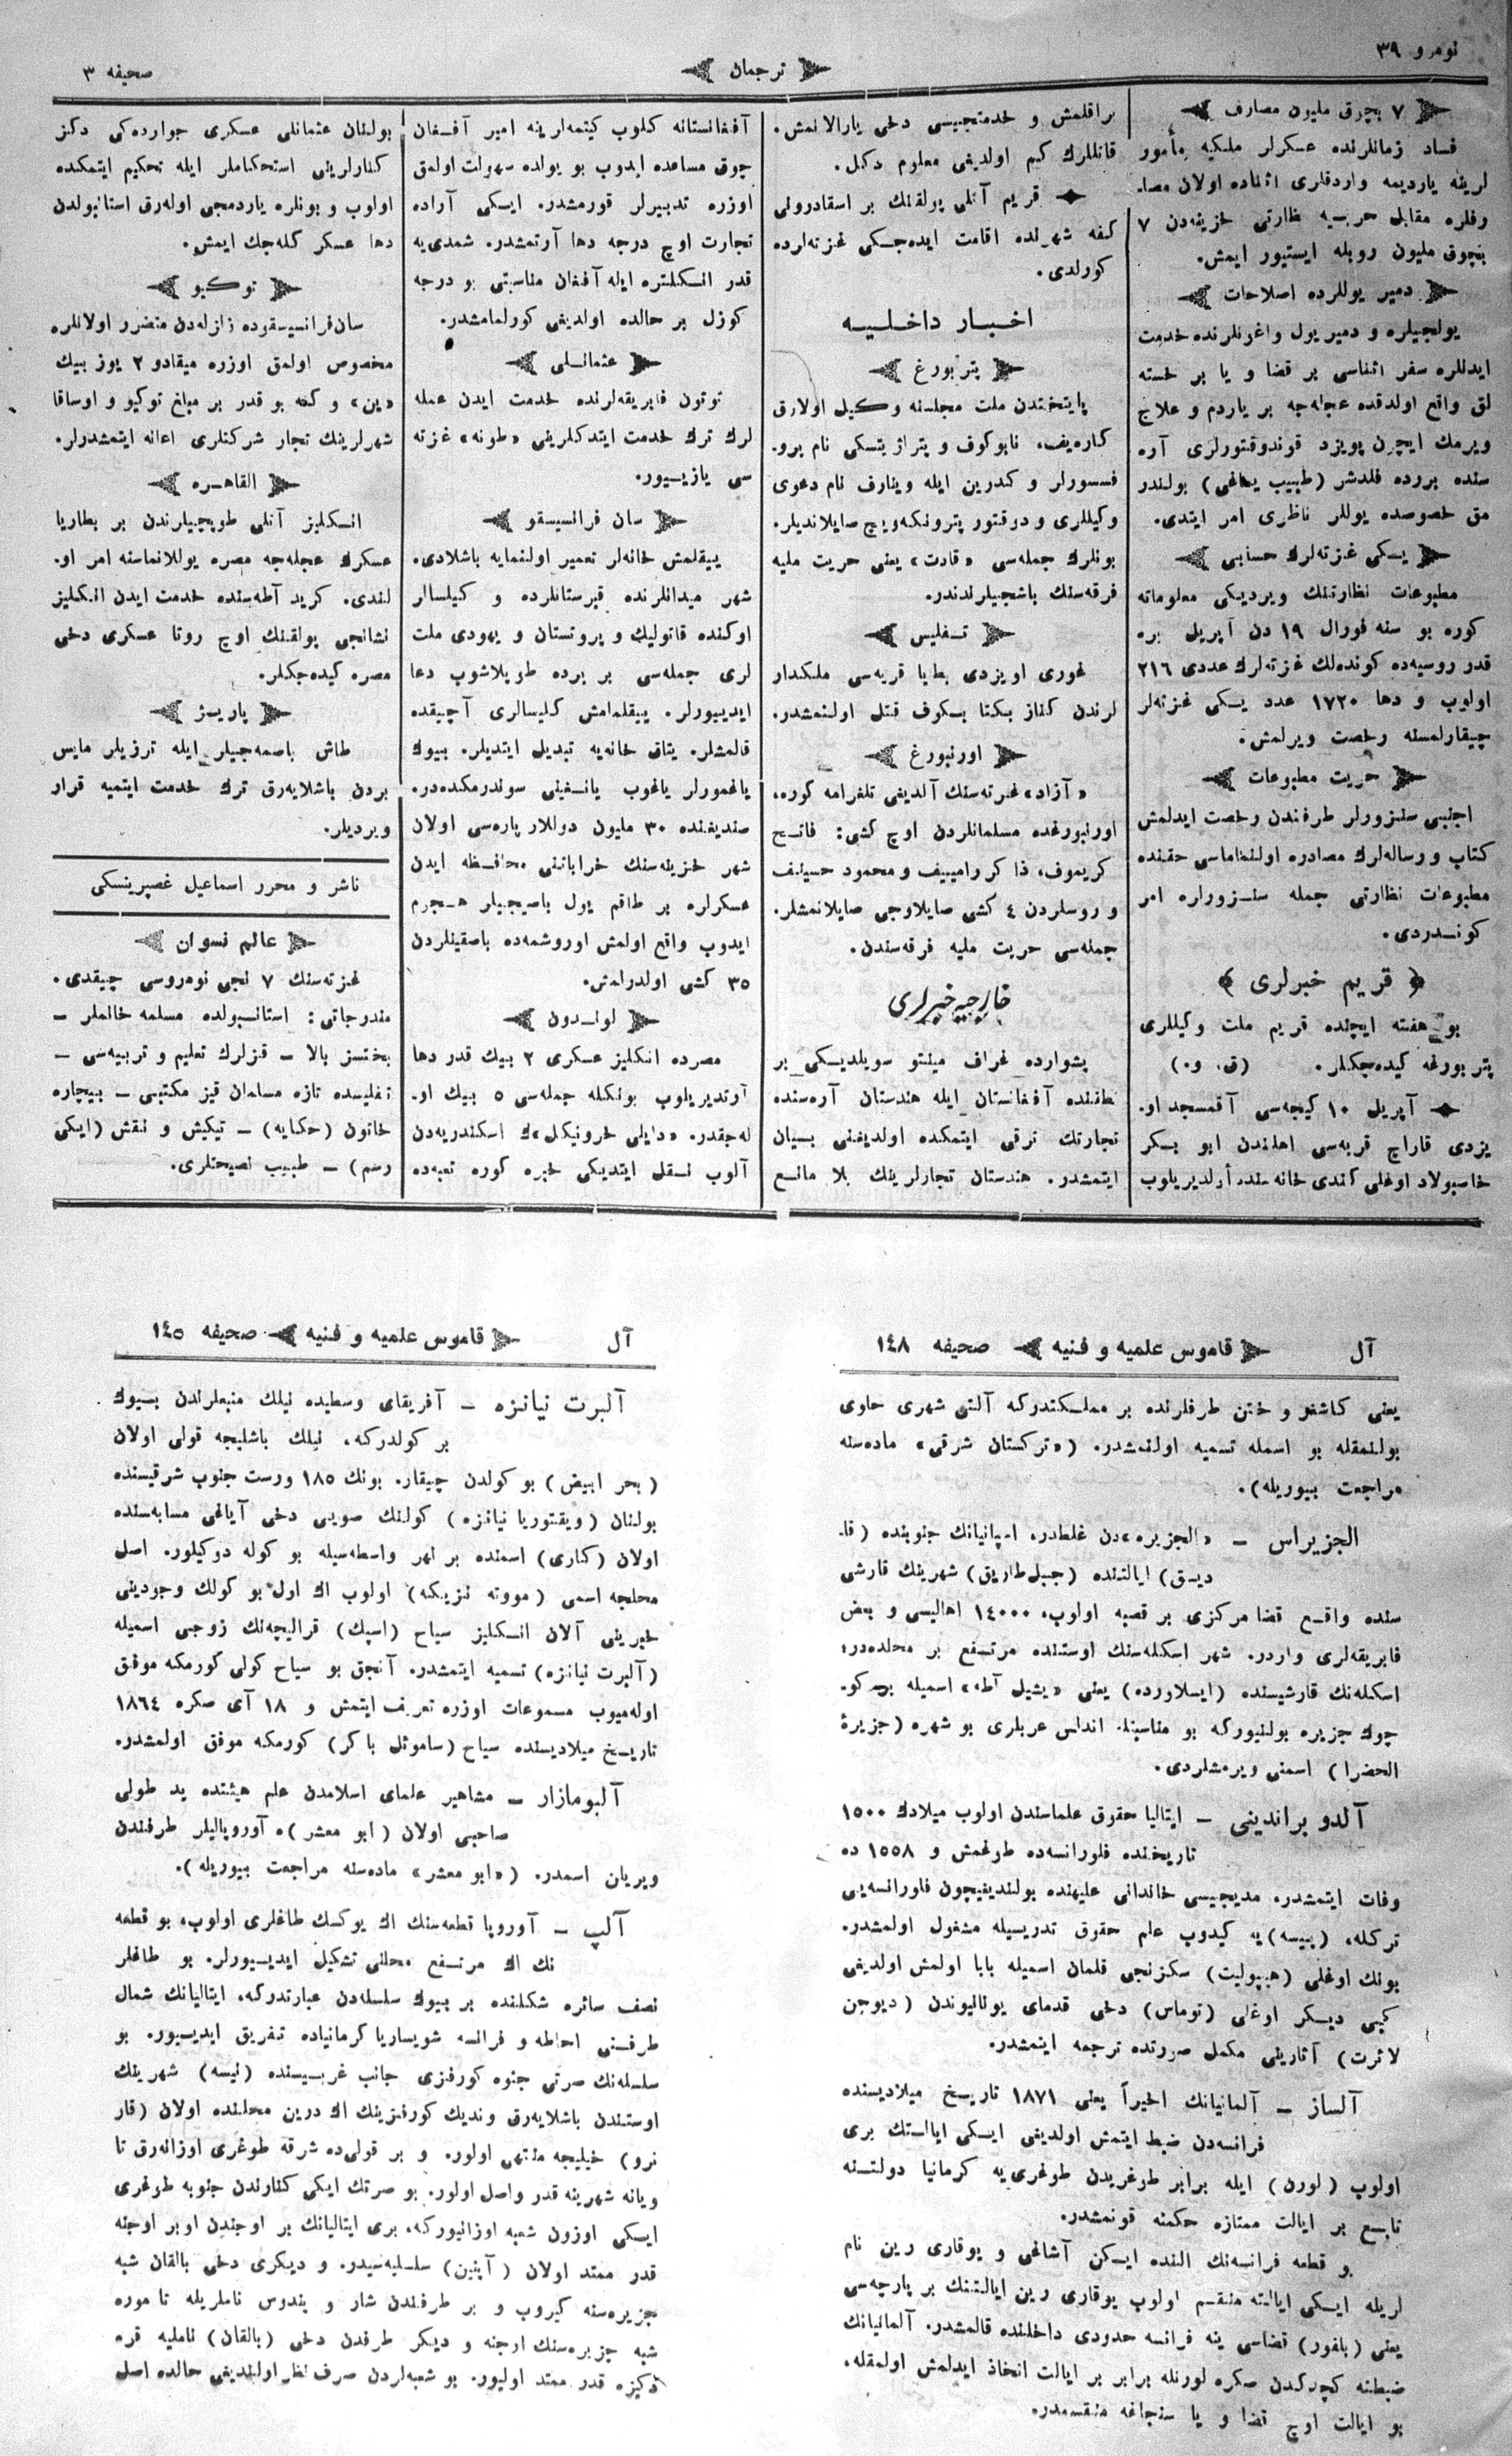 نومرو ٣٩
ترجمان
صحیفه ٣
٧ بچرق ملیون مصارف
فساد زمانلرنده عسکرلر ملکیه مأمور
لرینه یاردیمه واردقلری اثناده اولان مصا۔
رفلره مقابل حربیه نظارتی خزینه‌دن ٧
بچوق ملیون روبله ایستیور ایمش.
دمیر یوللرده اصلاحات
یولجیلره و دمیر یول واغونلرنده خدمت
ایدللره سفر اثناسی بر قضا و یا بر خسته
لق واقع اولدقده عجله‌جه بر یاردم و علاج
ویرمك ایچون پویزد قوندوقتورلری آره
سنده برورده فلدشر (طبیب یماغی) بولندر
مق خصوصده یوللر ناظری امر ایتدی.
یسکی غزته‌لرك حسابی
مطبوعات نظارتنك ویردیکی معلوماته
کوره بو سنه فورال ١٩ دن آپریل بره
قدر روسیه‌ده کونده‌لك غزته‌لرك عددی ٢١٦
اولوب و دها ١٧٢٠ عدد یسکی غزته‌لر
چیقارلمسنه رخصت ویرلمش.
حریت مطبوعات
اجنبی سنزورلر طرفندن رخصت ایدلمش
کتاب و رساله‌لرك مصادره اولنماماسی حقنده
مطبوعات نظارتی جمله سنزورلره امر
کوندردی.
﴿ قریم خبرلری ﴾
بو هفته ایچنده قریم ملت وکیللری
پتربورغه کیده‌جکلر. (ق. و.)
آپریل ١٠ کیجه‌سی آقمسجد او۔
یزدی قاراچ قریه‌سی اهلندن ابو بکر
خاسبولاد اوغلی کندی خانه سنده أولدیریلوب
براقلمش و خدمتجیسی دخی یارالانمش.
قاتللرك کیم اولدیغی معلوم دکل.
قریم آتلی پولقنك بر اسقادرونی
کفه شهرنده اقامت ایده‌جکی غزته‌لرده
کورلدی.
اخبار داخلیه
پتربورغ
پایتختدن ملت مجلسنه وکیل اولارق
کاره‌یف، نابوکوف و پتراژیتسکی نام پرو۔
فسسورلر و کدرین ایله ویناوف نام دعوی
وکیللری و دوقتور پترونکه‌ویچ صایلاندیلر.
بونلرك جمله‌سی «قادت» یعنی حریت ملیه
فرقه‌سنك باشجیلرلندندر.
تفلیس
غوری اویزدی بطیا قریه‌سی ملکدار
لرندن کناز بکتا بکوف قتل اولنمشدر.
اورنبورغ
«آزاد» غزته‌سنك آلدیغی تلغرامه کوره،
اورنبورغده مسلمانلردن اوچ کشی: فاتح
کریموف، ذاکر رامییف و محمود حسینف
و روسلردن ٤ کشی صایلاوجی صایلانمشلر.
جمله‌سی حریت ملیه فرقه‌سندن.
خارجیه خبرلری
پشوارده غراف مینتو سویلدیکی بر
نطقنده آفغانستان ایله هندستان آره‌سنده
تجارتك ترقی ایتمکده اولدیغنی بسیان
ایتمشدر. هندستان تجارلرینك بلا مانع
آفغانستانه کلوب کیتمه‌لرینه امیر آفغان
چوق مساعده ایدوب بو یولده سهولت اولمق
اوزره تدبیرلر قورمشدر. ایکی آراده
تجارت اوچ درجه دها آرتمشدر. شمدی‌یه
قدر انکلتره ایله آفغان مناسبتی بو درجه
کوزل بر حالده اولدیغی کورلمامشدر.
عثمانلی
توتون فابریقه‌لرنده خدمت ایدن عمله
لرك ترك خدمت ایتدکلرینی «طونه» غزته
سی یازیور.
سان فرانسیسقو
ییقلمش خانه‌لر تعمیر اولنمایه باشلادی.
شهر میدانلرنده قبرستانلرده و کیلسالر
اوکنده قاتولیك و پروتستان و یهودی ملت
لری جمله‌سی بر یرده طوپلاشوب دعا
ایدییورلر. ییقلمامش کلیسالری آچیقده
قالمشلر. یتاق خانه‌یه تبدیل ایتدیلر. بیوك
یاغمورلر یاغوب یانغینی سوندرمکده‌در.
صندیغنده ٣٠ ملیون دوللار پاره‌سی اولان
شهر خزینه‌سنك خراباتنی محافظه ایدن
عسکرلره بر طاقم یول باصیجیلر هجوم
ایدوب واقع اولمش اوروشمه‌ده باصقینلردن
٣٥ کشی اولدرلمش.
لوندون
مصرده انکلیز عسکری ٢ بیك قدر دها
آرتدیریلوب بونکله جمله‌سی ٥ بیك او۔
له‌جقدر. «دایلی خرونیکل»ك اسکندریه‌دن
آلوب نقل ایتدیکی خبره کوره تعبه‌ده
بولنان عثمانلی عسکری جوارده‌کی دکز
کنارلرینی استحکاملر ایله تحکیم ایتمکده
اولوب و بونلره یاردمجی اوله‌رق استانبولدن
دها عسکر کله‌جك ایمش.
توکیو
سان‌فرانسیسقوده زلزله‌دن متضرر اولانلره
مخصوص اولمق اوزره میقادو ٢ یوز بیك
«ین» و کنه بو قدر بر مبلغ توکیو و اوساقا
شهرلرینك تجار شرکتلری اعانه ایتمشدرلر.
القاهره
انکلیز آتلی طوپجیلرندن بر بطاریا
عسکرك عجله‌جه مصره یوللانماسنه امر او۔
لندی. کرید آطه‌سنده خدمت ایدن انکلیز
نشانجی پولقنك اوچ روتا عسکری دخی
مصره کیده‌جکلر.
پاریژ
طاش باصمه‌جیلر ایله ترزیلر مایس
بردن باشلایه‌رق ترك خدمت ایتمیه قرار
ویردیلر.
ناشر و محرر اسماعیل غصپرینسکی
عالم نسوان
غزته‌سنك ٧ نجی نومروسی چیقدی.
مندرجاتی: استانبولده مسلمه خانملر –
بختسز بالا – قزلرك تعلیم و تربیه‌سی –
تفلیسده تازه مسلمان قیز مکتبی – بیچاره
خاتون (حکایه) – تیکیش و نقش (ایکی
رسم) – طبیب نصیحتلری.
آل
قاموس علمیه و فنیه
صحیفه ١٤٨
یعنی کاشغر و ختن طرفلرنده بر مملکتدرکه آلتی شهری حاوی
بولنمقله بو اسمله تسمیه اولنمشدر. («ترکستان شرقی» ماده‌سنه
مراجعت بیوریله).
الجزیراس – «الجزیره»دن غلطدر. اسپانیانك جنوبنده (قا۔
دیق) ایالتنده (جبل‌طاریق) شهرینك قارشی
سنده واقع قضا مرکزی بر قصبه اولوب، ١٤٠٠٠ اهالیسی و بعض
فابریقه‌لری واردر. شهر اسکله‌سنك اوستنده مرتفع بر محلده‌در؛
اسکله‌نك قارشیسنده (ایسلاورده) یعنی «یشیل آطه» اسمیله بر کو۔
چوك جزیره بولنیورکه بو مناسبتله اندلس عربلری بو شهره (جزیرۀ
الحضرا) اسمنی ویرمشلردی.
آلدو براندینی – ایتالیا حقوق علماسندن اولوب میلادك ١٥٠٠
تاریخنده فلورانسه‌ده طوغمش و ١٥٥٨ ده
وفات ایتمشدر. مدیجیسی خاندانی علیهنده بولندیغیچون فلورانسه‌یی
ترکله، (پیسه)یه کیدوب علم حقوق تدریسیله مشغول اولمشدر.
بونك اوغلی (هیپولیت) سکزنجی قلمان اسمیله پاپا اولمش اولدیغی
کبی دیکر اوغلی (توماس) دخی قدمای یونانیوندن (دیوجن
لائرت) آثارینی مکمل صورتده ترجمه ایتمشدر.
آلساز – آلمانیانك اخیراً یعنی ١٨٧١ تاریخ میلادیسنده
فرانسه‌دن ضبط ایتمش اولدیغی ایکی ایالتك بری
اولوب (لورن) ایله برابر طوغریدن طوغری‌یه کرمانیا دولتنه
تابع بر ایالت ممتازه حکمنه قونمشدر.
بو قطعه فرانسه‌نك النده ایکن آشاغی و یوقاری رین نام
لریله ایکی ایالته منقسم اولوب یوقاری رین ایالتنك بر پارچه‌سی
یعنی (بلفور) قضاسی ینه فرانسه حدودی داخلنده قالمشدر. آلمانیانك
ضبطنه کچدکدن صکره لورنله برابر بر ایالت اتخاذ ایدلمش اولمقله،
بو ایالت اوچ قضا و یا سنجاغه منقسمدر.
آل
قاموس علمیه و فنیه
صحیفه ١٤٥
آلبرت نیانزه – آفریقای وسطیده نیلك منبعلرندن بیوك
بر کولدرکه، نیلك باشلیجه قولی اولان
(بحر ابیض) بو کولدن چیقار. بونك ١٨٥ ورست جنوب شرقیسنده
بولنان (ویقتوریا نیانزه) کولنك صویی دخی آیاغی مسابه‌سنده
اولان (کناری) اسمنده بر نهر واسطه‌سیله بو کوله دوکیلور. اصل
محلجه اسمی (مووته نزیکه) اولوب اك اول بو کولك وجودینی
خبرینی آلان انکلیز سیاح (اسپك) قرالیچه‌نك زوجی اسمیله
(آلبرت نیانزه) تسمیه ایتمشدر. آنجق بو سیاح کولی کورمکه موفق
اوله‌میوب مسموعات اوزره تعریف ایتمش و ١٨ آی صکره ١٨٦٤
تاریخ میلادیسنده سیاح (ساموئل باکر) کورمکه موفق اولمشدر.
آلبومازار – مشاهیر علمای اسلامدن علم هیئتده ید طولی
صاحبی اولان (ابو معشر)ه آوروپالیلر طرفندن
ویریان اسمدر. («ابو معشر» ماده‌سنه مراجعت بیوریله).
آلپ – آوروپا قطعه‌سنك اك یوکسك طاغلری اولوب، بو قطعه
نك اك مرتفع محلنی تشکیل ایدییورلر. بو طاغلر
نصف سائره شکلنده بر بیوك سلسله‌دن عبارتدرکه، ایتالیانك شمال
طرفنی احاطه و فرانسه شویساریا کرمانیاده تفریق ایدییور. بو
سلسله‌نك صرتی جنوه کورفزی جانب غربیسنده (نیسه) شهرینك
اوستندن باشلایه‌رق وندیك کورفزینك اك درین محلنده اولان (قار
نرو) خیلیجه منتهی اولور. و بر قولی‌ده شرقه طوغری اوزانه‌رق تا
ویانه شهرینه قدر واصل اولور. بو صرتك ایکی کنارندن جنوبه طوغری
ایکی اوزون شعبه اوزانیورکه، بری ایتالیانك بر اوجندن اوبر اوجنه
قدر ممتد اولان (آپنین) سلسله‌سیدر. و دیکری دخی بالقان شبه
جزیره‌سنه کیروب و بر طرفندن شار و پندوس ناملریله تا موره
شبه جزیره‌سنك ارجنه و دیکر طرفدن دخی (بالقان) نامیله قره
دکیزه قدر ممتد اولیور. بو شعبه‌لردن صرف نظر اولندیغی حالده اصل